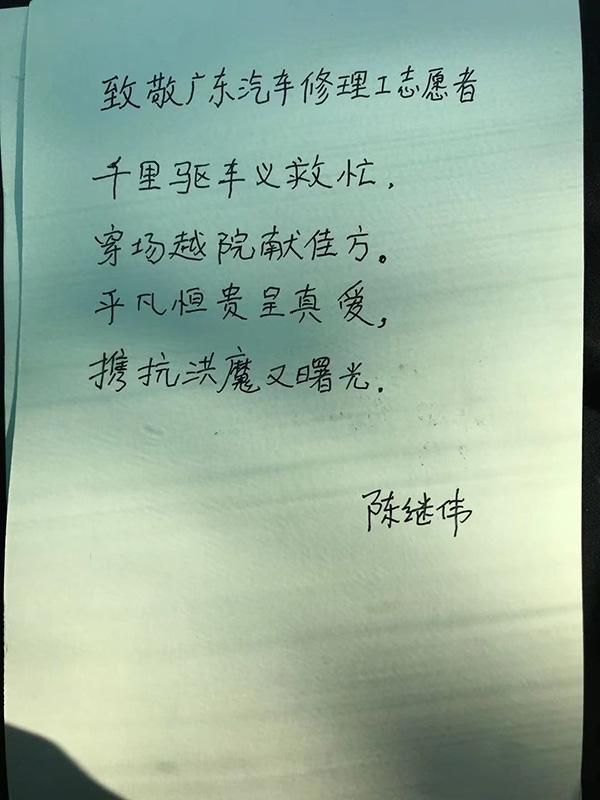 致敬广东汽车修理工志愿者
千里驱车义救忙,
穿场越院献佳方。
平凡恒贵呈真爱,
携抗洪魔又曙光.
陈继伟